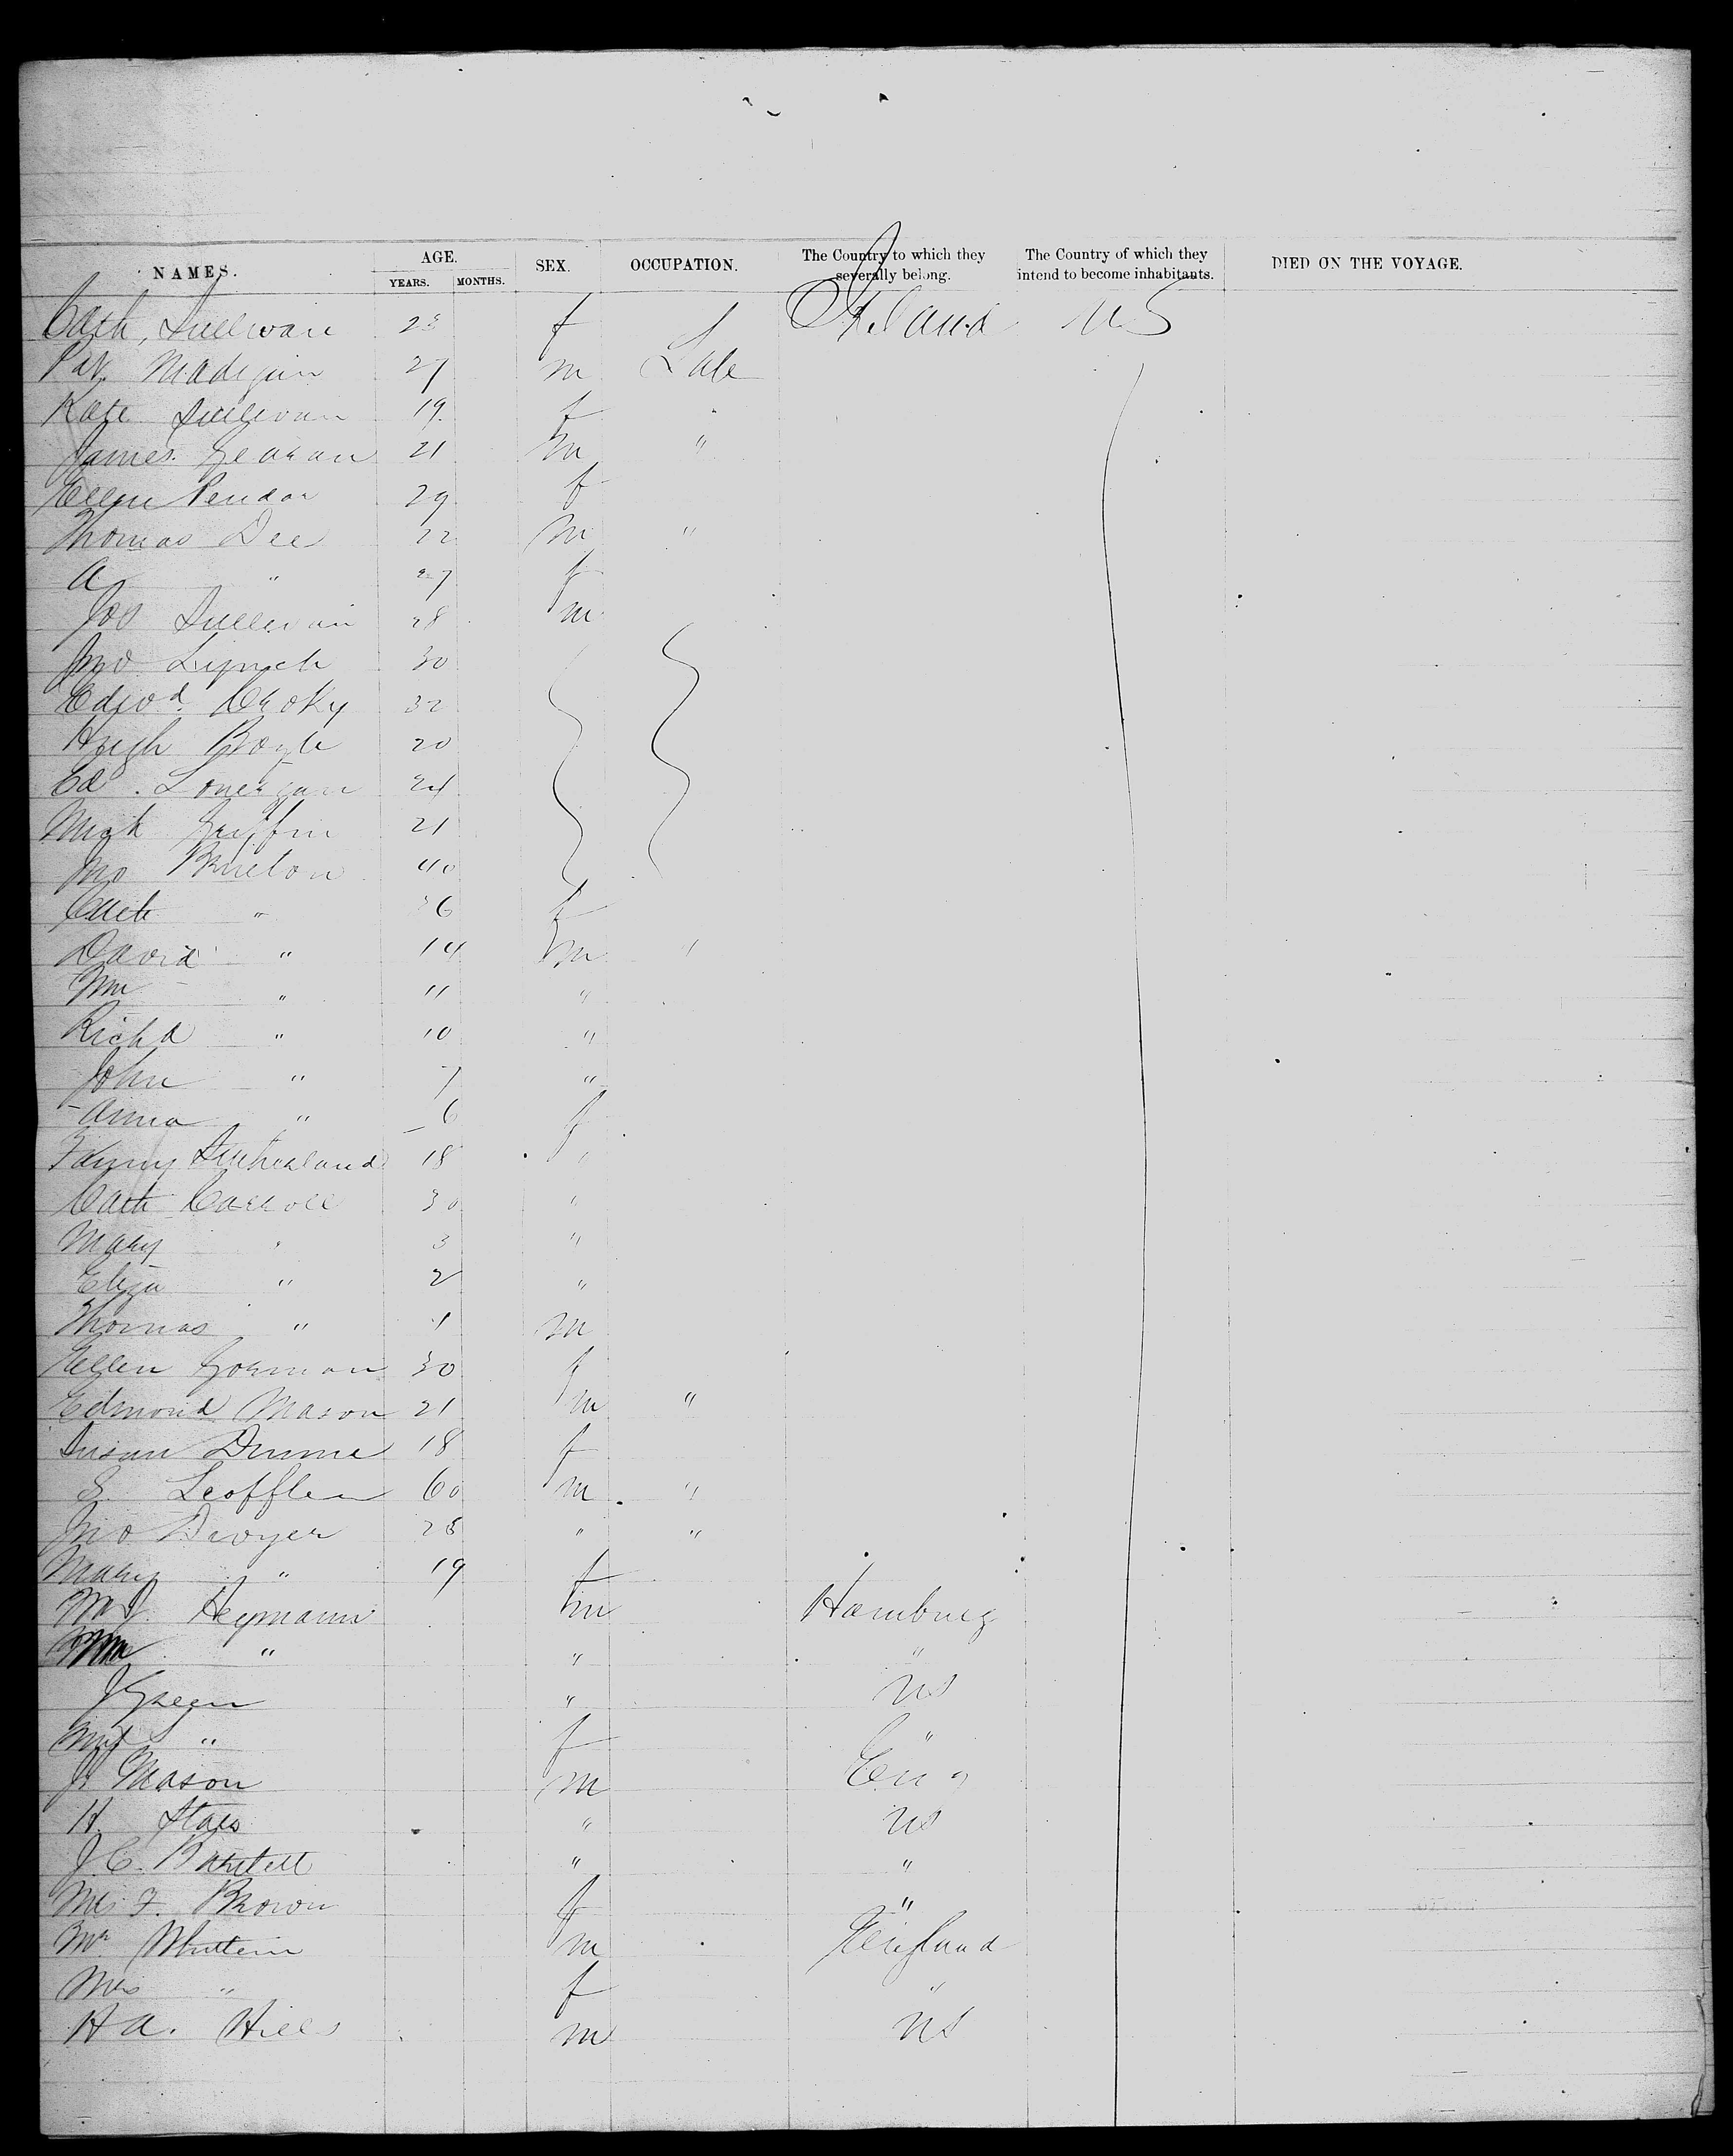 NAMES. AGE. YEARS. MONTHS. SEX. OCCUPATION. The Country to which they severally belong. The Country of which they intend to become inhabitants. DIED ON THE VOYAGE.
Cath, Sullivan 23 f Ireland US
Pat. Madigan 27 m Lab
Kate Sullivan 19 f "
James Gearan 21 m "
Ellen Pendar 29 f
Thomas Dee 22 m "
A " 27 f
Jos Sullivan 28 m
Jno Lynch 30
Edwd. Croky 32
Hugh Boyle 20
Ed. Lonergan 24
Mich Griffin 21
Jno Bruton 40
Cath " 36 f
David " 14 m "
Wm " 11 "
Richd " 10 "
John " 7 "
Anna " 6 f
Fanny Sutherland 18 "
Cath Carroll 30 "
Mary " 3 "
Eliza " 2 "
Thomas " 1 m
Ellen Gorman 30 f
Edmond Mason 21 m "
Susan Dunne 18 f
S. Leoffler 60 m "
Jno Dwyer 28 " "
Mary " 19 f
Heymann m Hamburg
" " "
J Green " US
" f "
J. Mason m Eng
H. Staes " US
J.C. Bartlett " "
Mrs F. Brown f "
Mr m England
Mrs " f "
H A. Hills m US